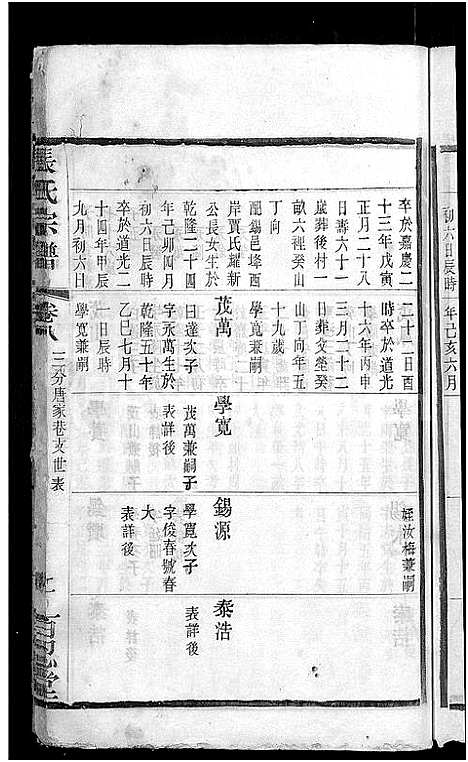 初六日辰時
年己亥六月
卒於嘉慶二
十三年戊寅
正月二十八
日壽六十一
歲葬後村一
畝六裡癸山
丁向
配錫邑垾西
岸賈氏耀新
公長女生於
乾隆二十四
年己卯四月
初六日辰時
卒於道光二
十四年甲辰
九月初六日
二十二日酉
時卒於道光
十六年丙申
三月二十二
日葬文塋癸
山丁向年五
十九歲
學寬兼嗣
茂萬
曰達次子
字永萬生於
乾隆五十年
乙巳七月十
一日辰時
學寬兼嗣
學寬
茂萬兼嗣子
表詳後
姪汝梅兼嗣
錫源
學寬次子
字俊春號春
大
表詳後
泰浩
表詳後
張氏宗譜
卷八
三分唐家巷支世表
百忍堂